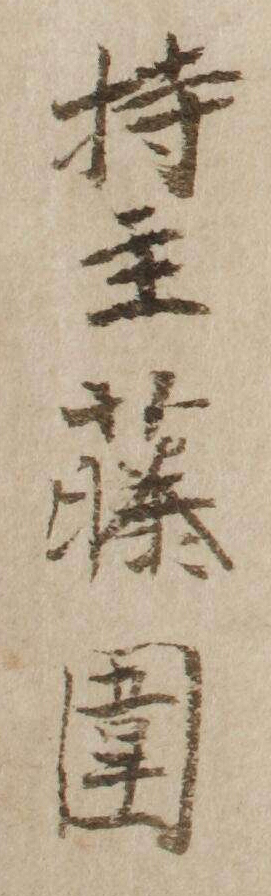 持主藤圍